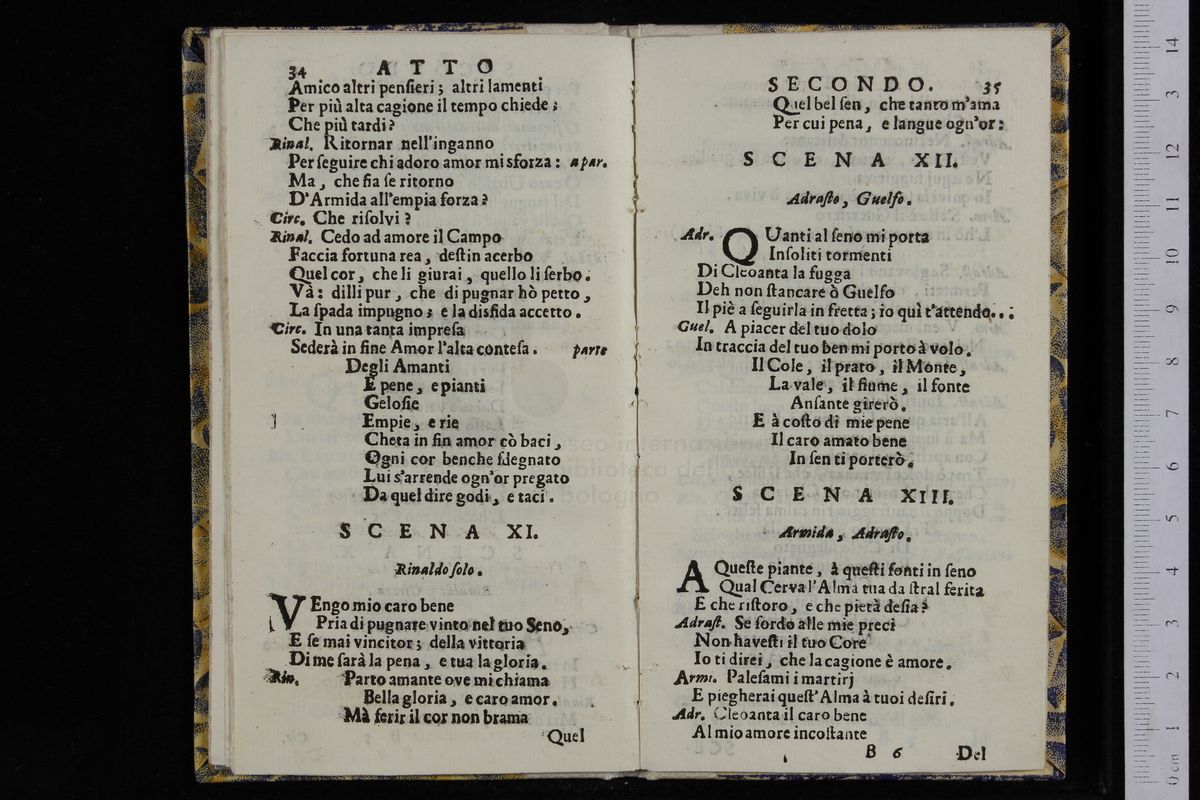 34 ATTO
Amico altri penſieri ; altri lamenti
Per più alta cagione il tempo chiede ;
Che più tardi ?
Rinal. Ritornar nell'inganno
Per ſeguire chi adoro amor mi sforza : apar.
Ma , che fia ſe ritorno
D'Armida all'empia forza ?
Circ. Che riſolvi ?
Rinal. Cedo ad amore il Campo
Faccia fortuna rea , deſtin acerbo
Quel cor , che li giurai , quello li ſerbo .
Và : dilli pur , che di pugnar hò petto ,
La ſpada impugno ; e la disfida accetto .
Circ. In una tanta impreſa
Sederà in fine Amor l'alta conteſa . parte
Degli Amanti
E pene , e pianti
Geloſie
Empie , e rie
Cheta in fin amor cò baci ,
Ogni cor benche ſdegnato
Lui s'arrende ogn'or pregato
Da quel dire godi , e taci .
SCENA XI.
Rinaldo ſolo .
VEngo mio caro bene
Pria di pugnare vinto nel tuo Seno,
E ſe mai vincitor ; della vittoria
Di me ſarà la pena , e tua la gloria .
Rin. Parto amante ove mi chiama
Bella gloria , e caro amor .
Mà ferir il cor non brama
Quel
SECONDO. 35
Quel bel ſen , che tanto m'ama
Per cui pena , e langue ogn'or :
SCENA XII.
Adraſto , Guelfo .
Adr. QUanti al ſeno mi porta
Inſoliti tormenti
Di Cleoanta la fugga
Deh non ſtancare ò Guelfo
Il piè a ſeguirla in fretta ; io quì t'attendo. . :
Guel. A piacer del tuo dolo
In traccia del tuo ben mi porto à volo .
Il Cole , il prato , il Monte ,
La vale , il fiume , il fonte
Anſante girerò .
E à coſto di mie pene
Il caro amato bene
In ſen ti porterò .
SCENA XIII.
Armida , Adraſto .
A Queſte piante , à queſti fonti in ſeno
Qual Cerva l'Alma tua da ſtral ferita
E che riſtoro , e che pietà deſia ?
Adraſt. Se ſordo alle mie preci
Non haveſti il tuo Core
Io ti direi , che la cagione è amore .
Armi. Paleſami i martirj
E piegherai queſt'Alma à tuoi deſiri .
Adr. Cleoanta il caro bene
Al mio amore incoſtante
B 6 Del